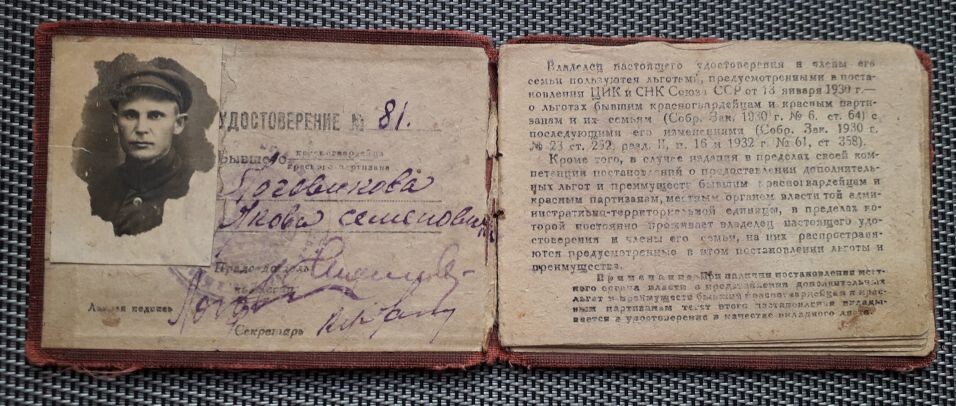 УДОСТОВЕРЕНИЕ № 81.
Бывшего красногвардейца
красного партизана
Логовикова
Якова Семеновича
Председатель
комиссии
Личная подпись
Секретарь
Владелец настоящего удостоверения и члены его
семьи пользуются льготами, предусмотренными в поста-
новлении ЦИК и СНК Союза ССР от 13 января 1930 г.—
о льготах бывшим красногвардейцам и красным парти-
занам и их семьям (Собр. Зак. 1930 г. № 6, ст. 64) с
последующими его изменениями (Собр. Зак. 1930 г.
№ 23 ст. 252, разд. II, п. 16 и 1932 г. № 61, ст 358).
Кроме того, в случае издания в пределах своей ком-
петенции постановлений о предоставлении дополнитель-
ных льгот и преимуществ бывшим красногвардейцам и
красным партизанам, местным органом власти той адми-
нистративно-территориальной единицы, в пределах ко-
торой постоянно проживает владелец настоящего удо-
стоверения и члены его семьи, на них распространя-
ются предусмотренные в этом постановлении льготы и
преимущества.
Примечание. При наличии постановления мест-
ного органа власти о представлении дополнительных
льгот и преимуществ бывшим красногвардейцам и крас-
ным партизанам текст этого постановления вклады-
вается в удостоверение в качестве вкладного листа.